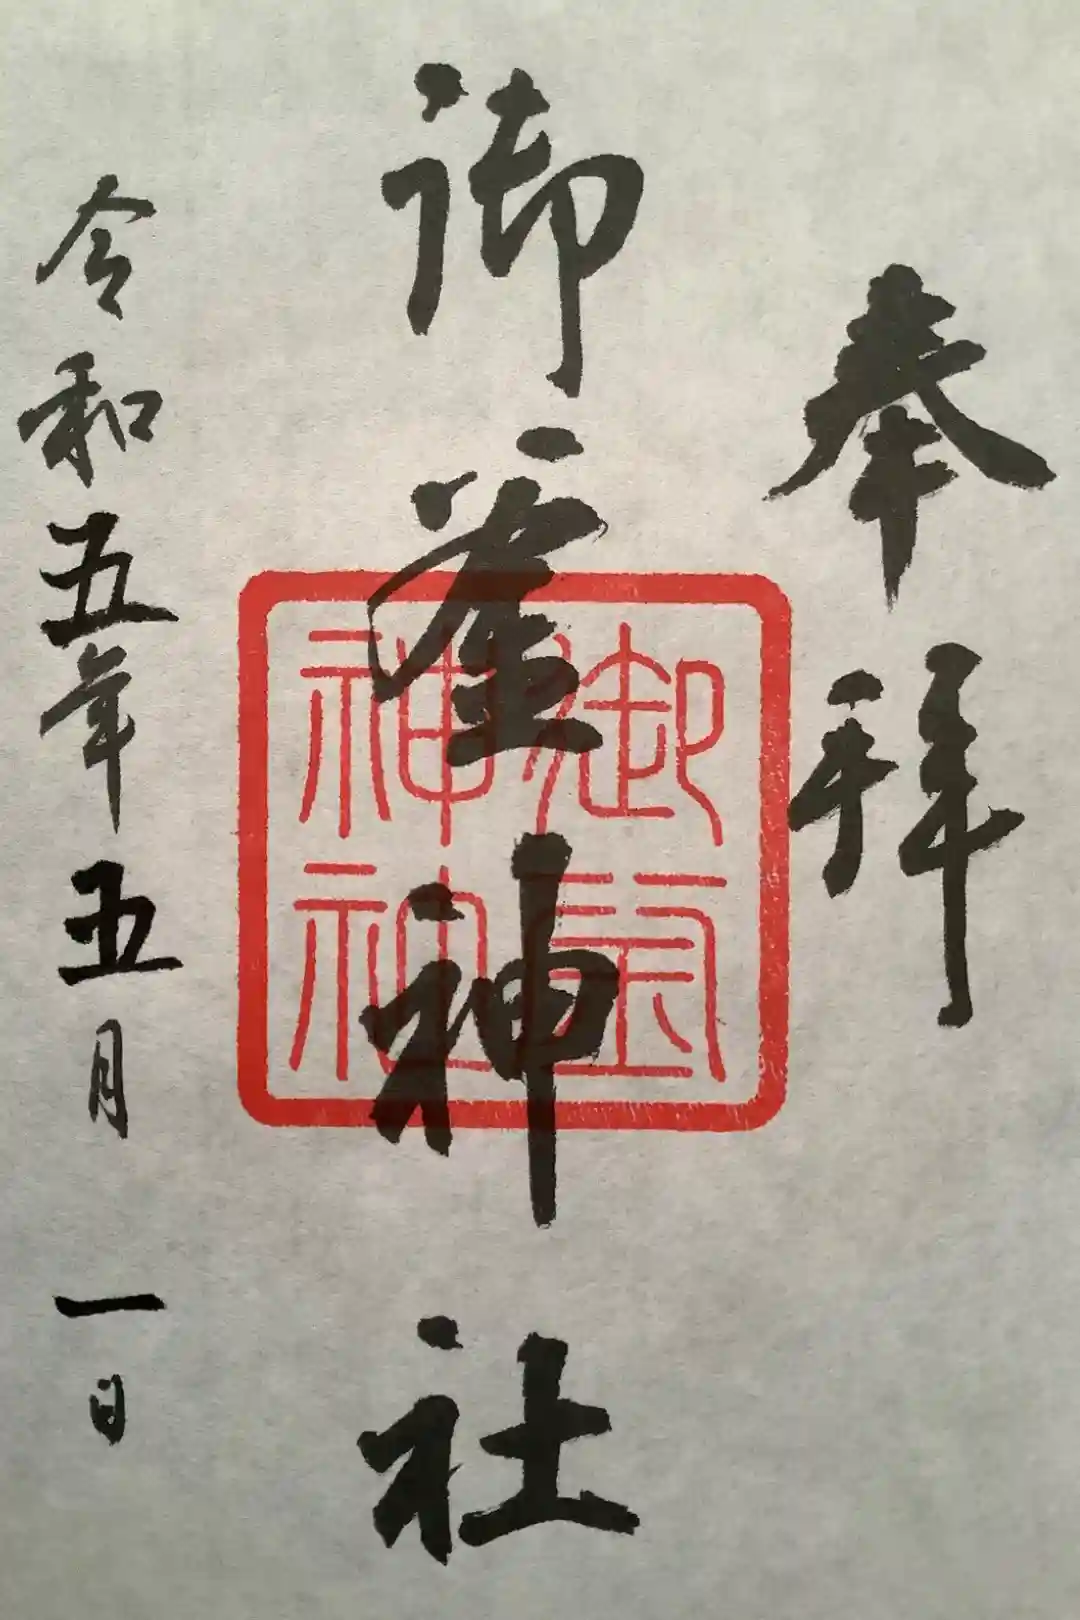 奉拝
御神社
御神社
令和五年五月一日